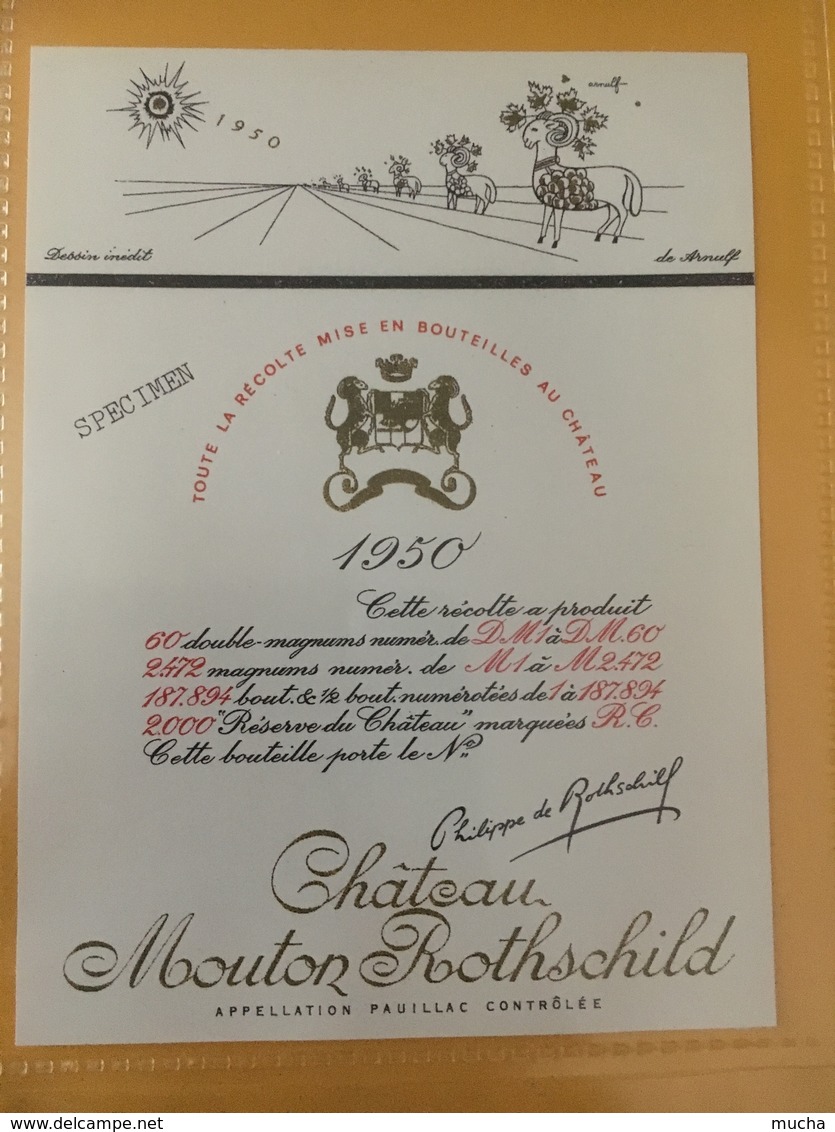 arnulf
1950
Dessin inédit
de Arnulf
TOUTE LA RÉCOLTE MISE EN BOUTEILLES AU CHÂTEAU
SPECIMEN
1950
Cette récolte a produit
60 double-magnums numér. de DM1 à DM.60
2.472 magnums numér. de M1 à M2.472
187.894 bout. & ½ bout. numérotées de 1 à 187.894
2.000 "Réserve du Château" marquées R.C.
Cette bouteille porte le Nº
Philippe de Rothschild
Château
Mouton Rothschild
APPELLATION PAUILLAC CONTRÔLÉE
© delcampe.net
mucha